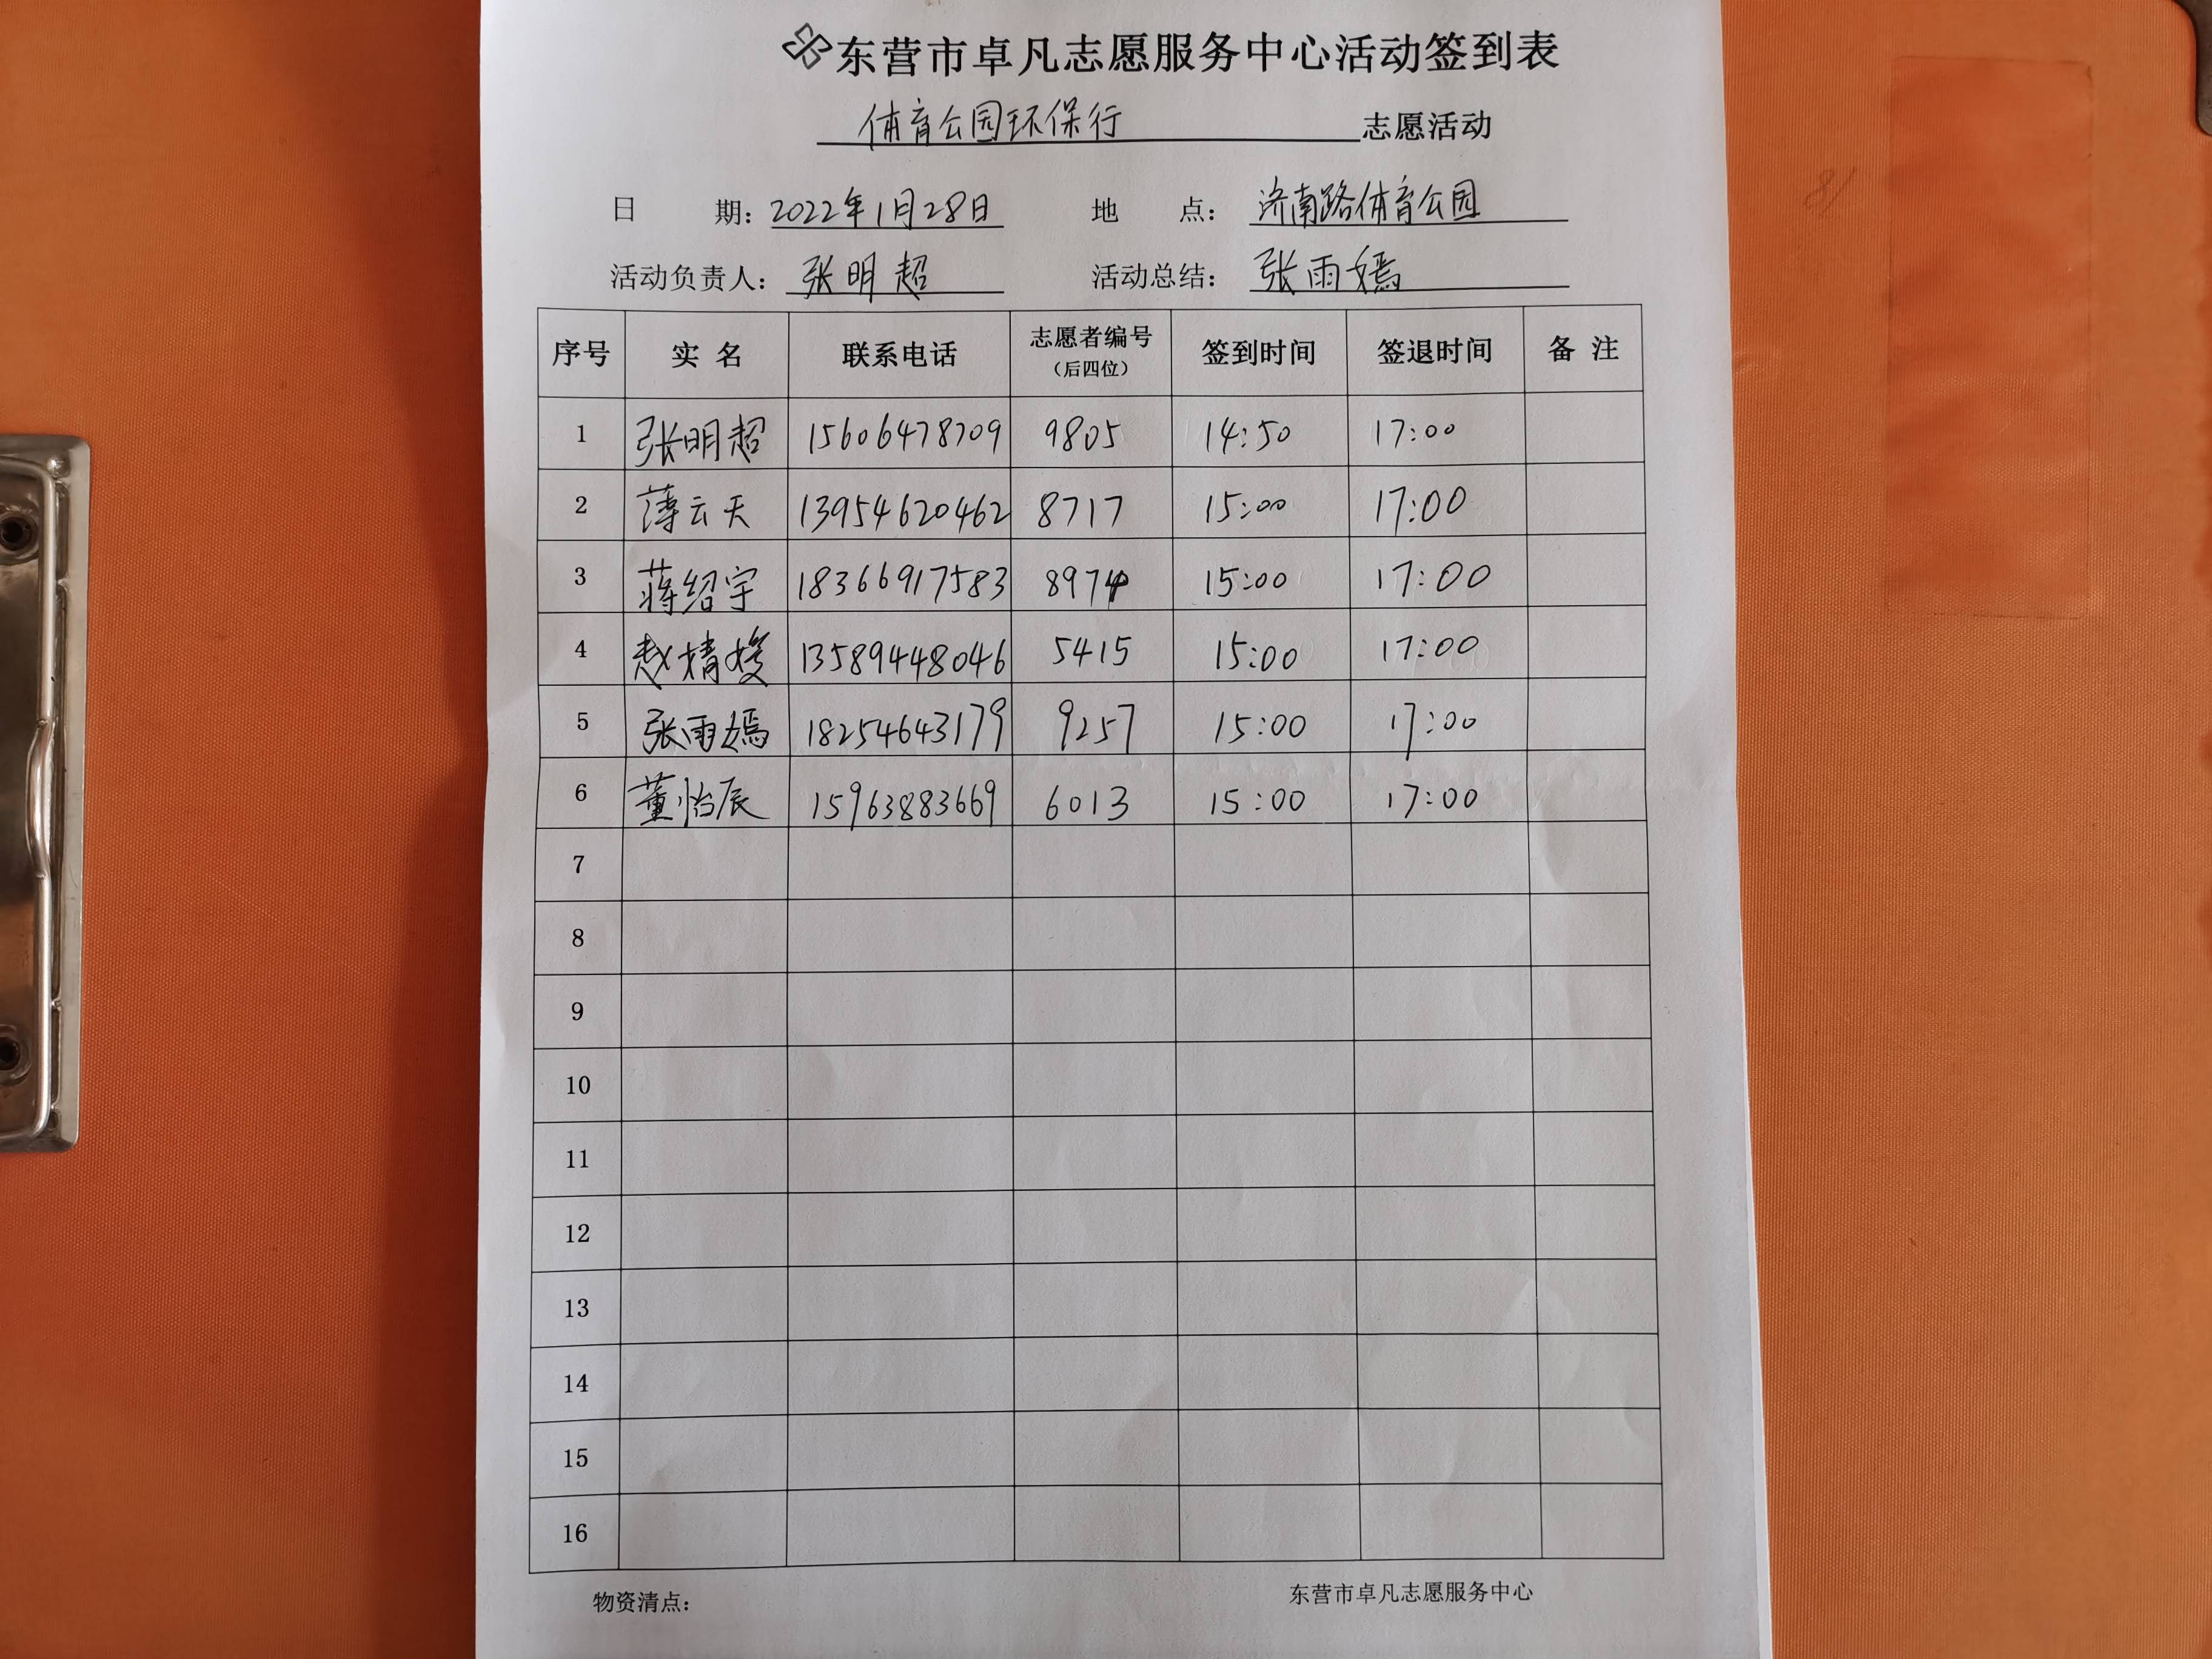 东营市卓凡志愿服务中心活动签到表
体育公园环保行 志愿活动
日 期：2022年1月28日 地 点：济南路体育公园
活动负责人：张明超 活动总结：张雨嫣
序号 实 名 联系电话 志愿者编号（后四位） 签到时间 签退时间 备 注
1 张明超 15606478709 9805 14:50 17:00
2 薄云天 13954620462 8717 15:00 17:00
3 蒋绍宇 18366917583 8974 15:00 17:00
4 赵婧媛 13589448046 5415 15:00 17:00
5 张雨嫣 18254643179 9257 15:00 17:00
6 董怡辰 15963883669 6013 15:00 17:00
7
8
9
10
11
12
13
14
15
16
物资清点： 东营市卓凡志愿服务中心